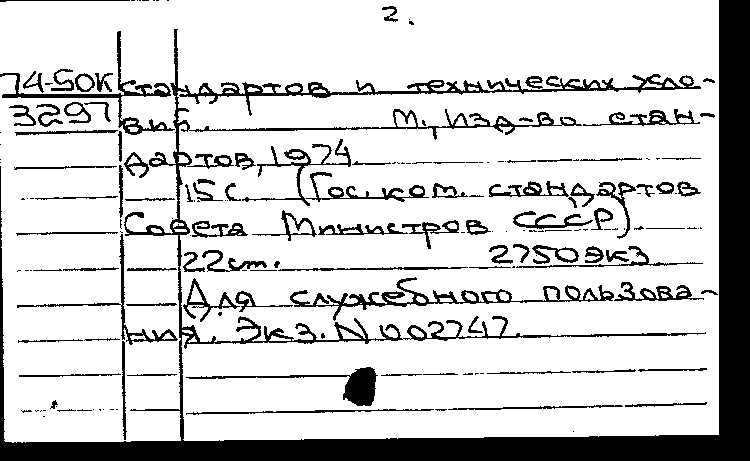 2.
74-50к стандартов и технических усло-
3297 вий. М., Изд-во стан-
дартов, 1974.
15 с. (Гос. ком. стандартов
Совета Министров СССР)
22 cm. 2750 экз
Для служебного пользова-
ния. Экз. N 002747.